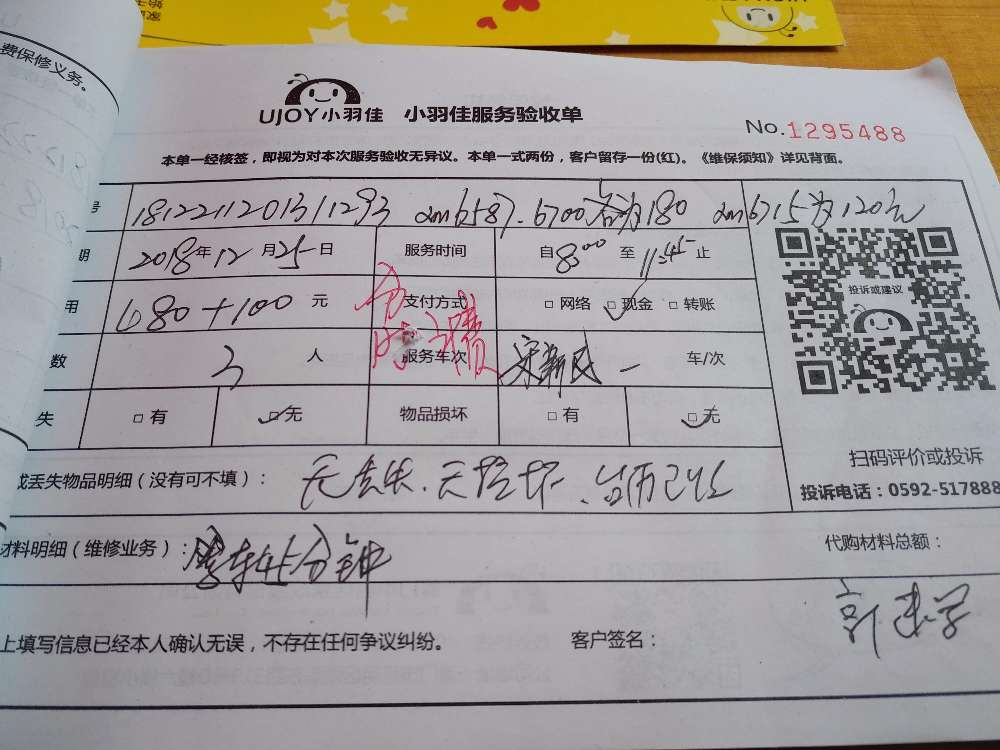 费保修义务。
UJOY小羽佳 小羽佳服务验收单
No.1295488
本单一经核签，即视为对本次服务验收无异议。本单一式两份，客户留存一份(红)。《维保须知》详见背面。
号 1812211201311293 6587.6700各为180 6715为120元
期 2018年12月25日 服务时间 自8:00至11:45止
用 680+100元 支付方式 □网络 □现金 □转账
投诉或建议
数 3人 服务车次 一 车/次
失 □有 □无 物品损坏 □有 □无
扫码评价或投诉
或丢失物品明细（没有可不填）： 无丢失.无损坏.
投诉电话：0592-517888
材料明细（维修业务）： 堵车45分钟
代购材料总额：
上填写信息已经本人确认无误，不存在任何争议纠纷。 客户签名：